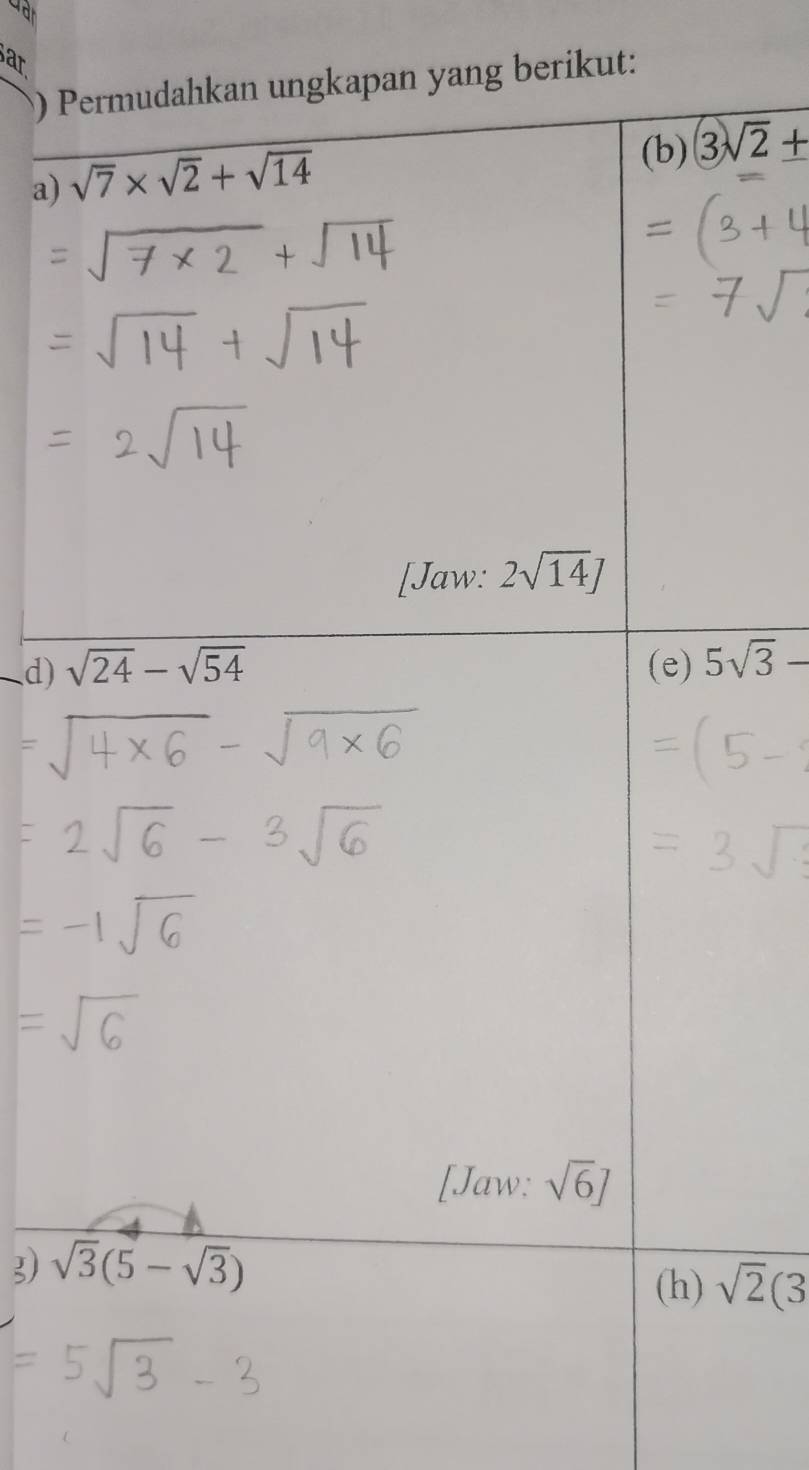 ) Permudahkan ungkapan yang berikut:
a) √7 × √2 + √14
= √7 × 2 + √14
= √14 + √14
= 2√14
[Jaw: 2√14]
(b) 3√2 +
= (3 + 4
= 7√
d) √24 − √54
= √4 × 6 - √9 × 6
= 2√6 - 3√6
= -1√6
= √6
[Jaw: √6]
(e) 5√3 −
= (5 -
= 3√
g) √3(5 − √3)
= 5√3 - 3
(h) √2(3